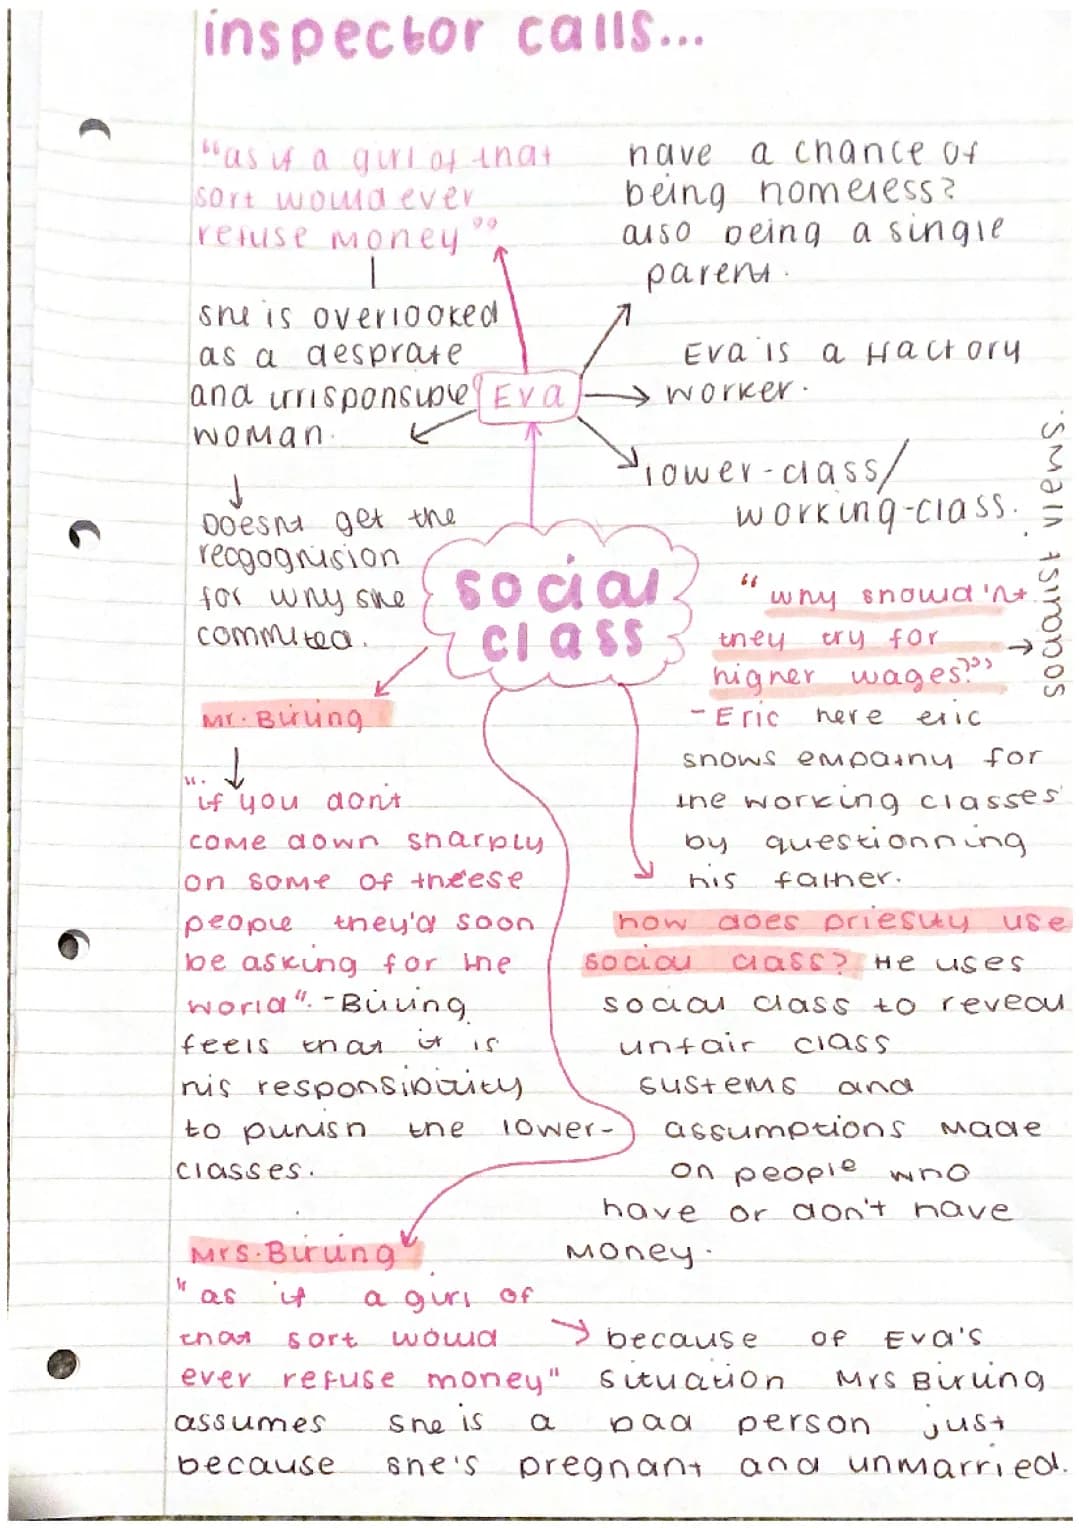 inspector calls...
"as if a girl of that
sort would ever
refuse money"
she is overlooked
as a desprate
and irrisponsible
woman.
Doesnt get the
recgognision
for why she
commited.
have a chance of
being homeless?
also being a single
parent.
Eva
Eva is a factory
worker.
lower-class/
working-class.
social
class
"why should'nt
they try for
higher wages?"
socialist views.
-Eric here eric
shows empathy for
the working classes
by questionning
his father.
Mr. Birling
"if you dont
come down sharply
on some of theese
people they'd soon
be asking for the
world". -Birling
feels that it is
his responsibility
to punish the lower-
classes.
how does priestly use
social class? He uses
social class to reveal
unfair class
sustems and
assumptions made
on people who
have or don't have
money.
Mrs. Birling
"as if a girl of
that sort would
ever refuse money"
because of Eva's
situation Mrs Birling
assumes she is a bad person just
because she's pregnant and unmarried.